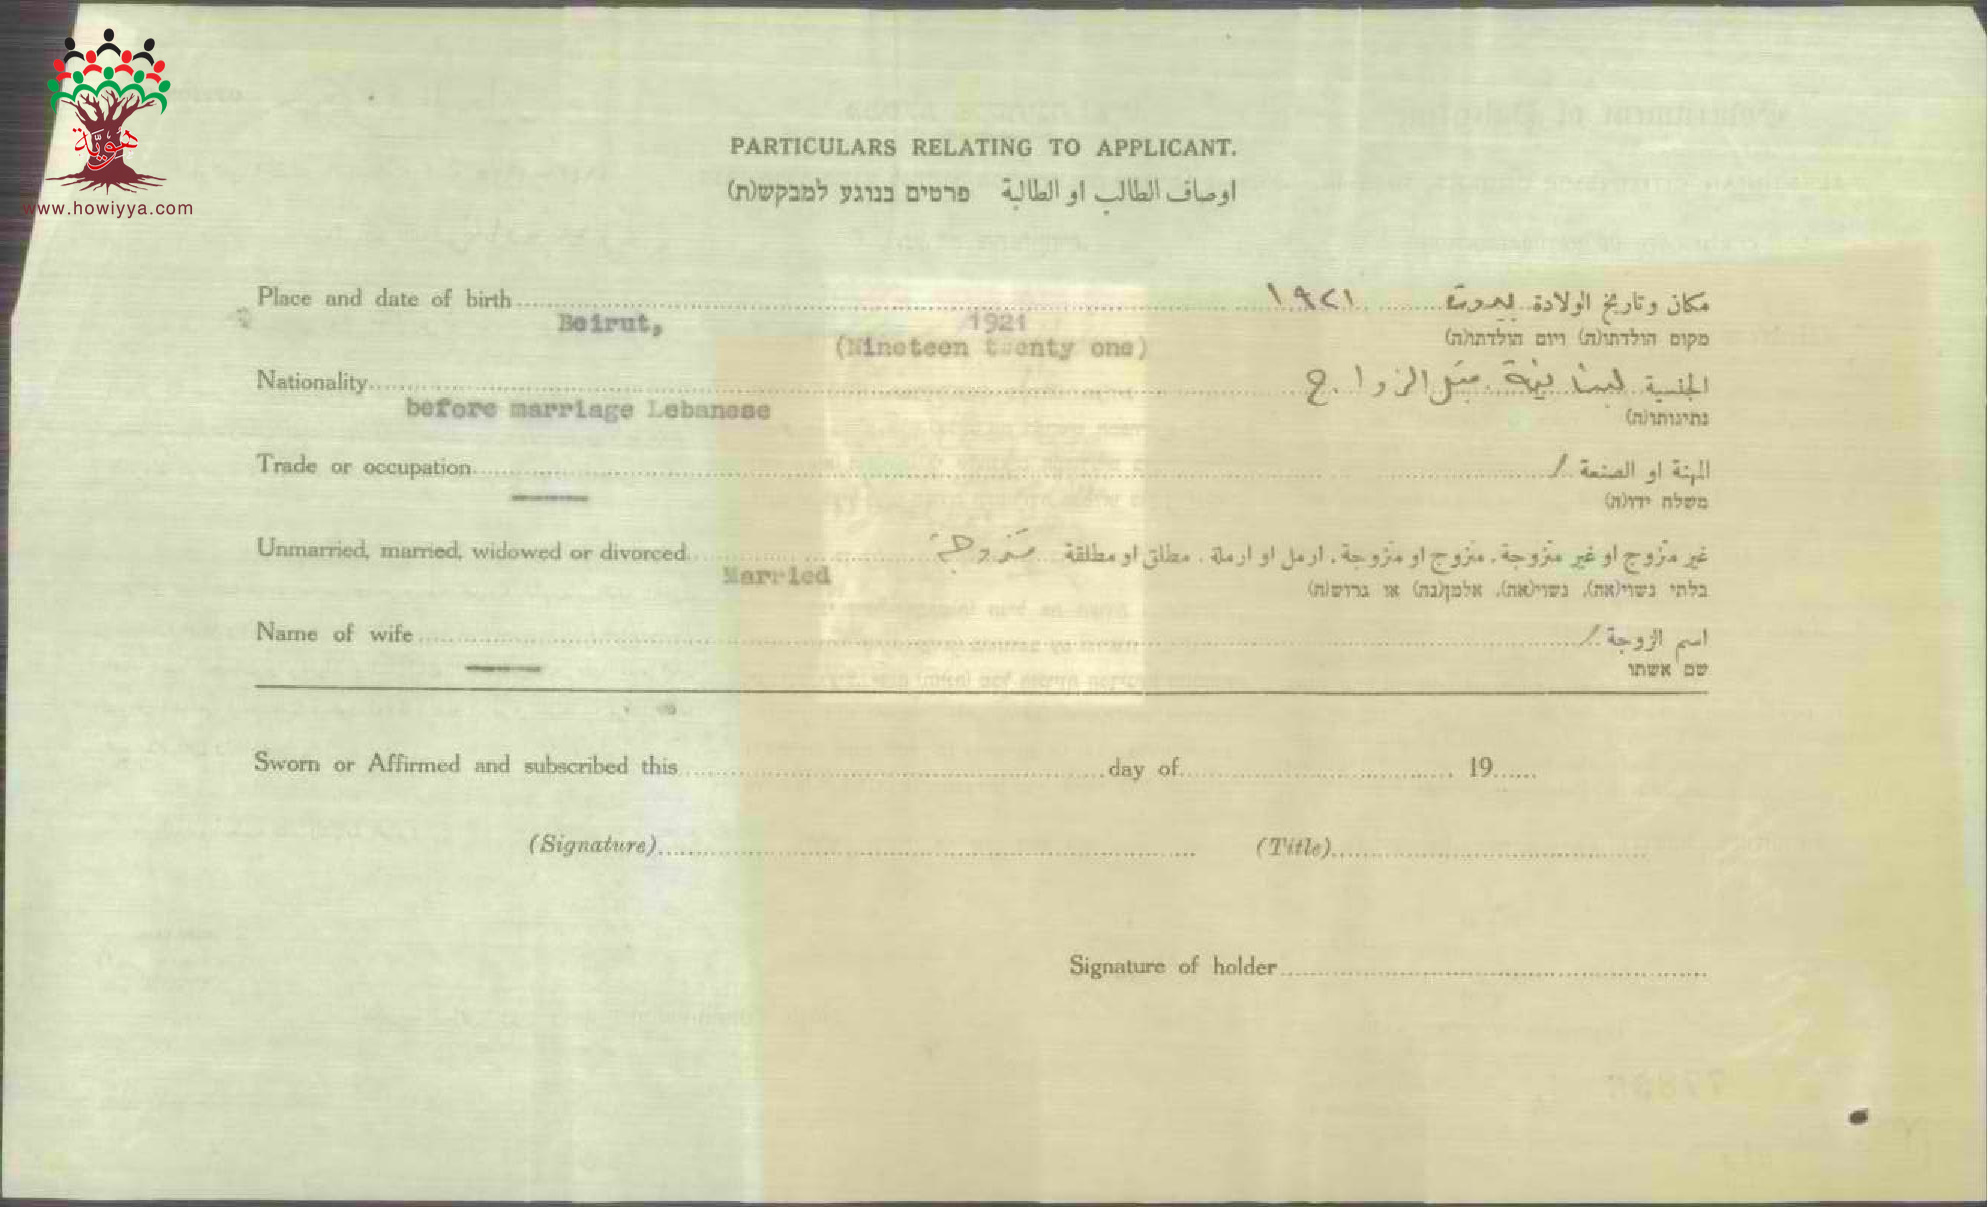 هويّة
www.howiyya.com
PARTICULARS RELATING TO APPLICANT.
اوصاف الطالب او الطالبة פרטים בנוגע למבקש(ת)
Place and date of birth ١٩٢١ بيروت مكان وتاريخ الولادة
Beirut, 1921
מקום הולדתו(ה) ויום הולדתו(ה)
(Nineteen twenty one)
Nationality لبنانية قبل الزواج الجنسية
before marriage Lebanese
נתינותו(ה)
Trade or occupation / المهنة او الصنعة
משלח ידו(ה)
Unmarried, married, widowed or divorced متزوجة غير متزوج او غير متزوجة، متزوج او متزوجة، ارمل او ارملة، مطلق او مطلقة
Married
בלתי נשוי(אה), נשוי(אה), אלמן(נה) או גרוש(ה)
Name of wife / اسم الزوجة
שם אשתו
Sworn or Affirmed and subscribed this day of 19
(Signature) (Title)
Signature of holder